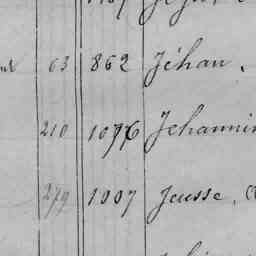 63 862 Jéhan,
210 1076 Jehannin
279 1007 Jeusse,